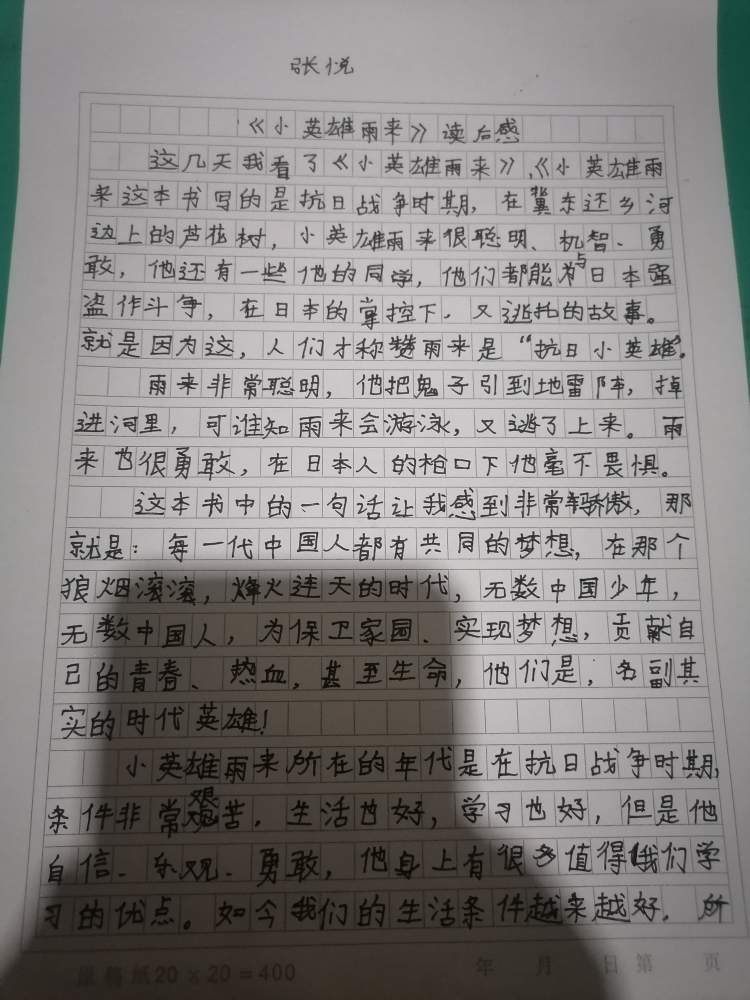 张悦
《小英雄雨来》读后感
这几天我看了《小英雄雨来》,《小英雄雨
来这本书写的是抗日战争时期，在冀东还乡河
边上的芦花树，小英雄雨来很聪明、机智、勇
敢，他还有一些他的同学，他们都能为与日本强
盗作斗争，在日本的掌控下，又逃托的故事。
就是因为这，人们才称赞雨来是“抗日小英雄”。
雨来非常聪明，他把鬼子引到地雷阵，掉
进河里，可谁知雨来会游泳，又逃了上来。雨
来也很勇敢，在日本人的枪口下他毫不畏惧。
这本书中的一句话让我感到非常骄傲，那
就是：每一代中国人都有共同的梦想，在那个
狼烟滚滚，烽火连天的时代，无数中国少年，
无数中国人，为保卫家园、实现梦想，贡献自
己的青春、热血，甚至生命，他们是，名副其
实的时代英雄！
小英雄雨来所在的年代是在抗日战争时期，
条件非常艰苦，生活也好，学习也好，但是他
自信、乐观、勇敢，他身上有很多值得我们学
习的优点。如今我们的生活条件越来越好，所
20×20=400
年 月 日第 页